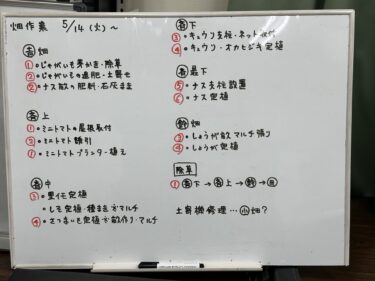 畑作業 5/14(火)～
畑
①・じゃがいも芽かき・除草
②・じゃがいもの追肥・土寄せ
②・ナス畝の肥料・石灰まき
上
①・ミニトマトの屋根取付
②・ミニトマト誘引
①・ミニトマトプランター植え
中
③・里芋定植
・しそ定植・種まき方マルチ
④・さつまいも定植方畝作り・マルチ
下
③・キュウリ支柱・ネット取付
④・キュウリ・オカヒジキ定植
最下
⑤・ナス支柱設置
⑥・ナス定植
畑
③・しょうが畝マルチ張り
④・しょうが定植
除草
①下→上→→
土寄機修理…小畑？